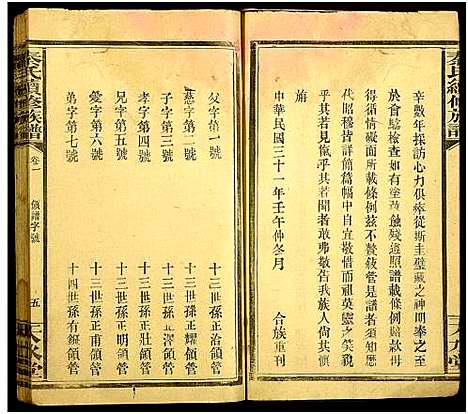 辛數年採訪心力俱瘁從斯圭璧藏之神明奉之至
於會點檢查如有塗莠蝕殘照譜載條例
得徇情礙面所有條例茲不贅敘管者須知歷
代昭穆皆詳簡篇中自宜敬惜而祖英靈之笑貌
乎其若見儀乎其若聞者敢敬告我族人尚其
中華民國三十一年壬午仲冬月
合族重刊
秦氏續修族譜
父字第一號 十三世孫正治領管
慈字第二號 十三世孫正耀領管
子字第三號 十三世孫正榜領管
孝字第四號 十三世孫正
兄字第五號 十三世孫正甫領管
愛字第六號 十三世孫正耀領管
弟字第七號 十四世孫有鎮領管
秦氏續修族譜
卷一
領譜字號
五
天水堂